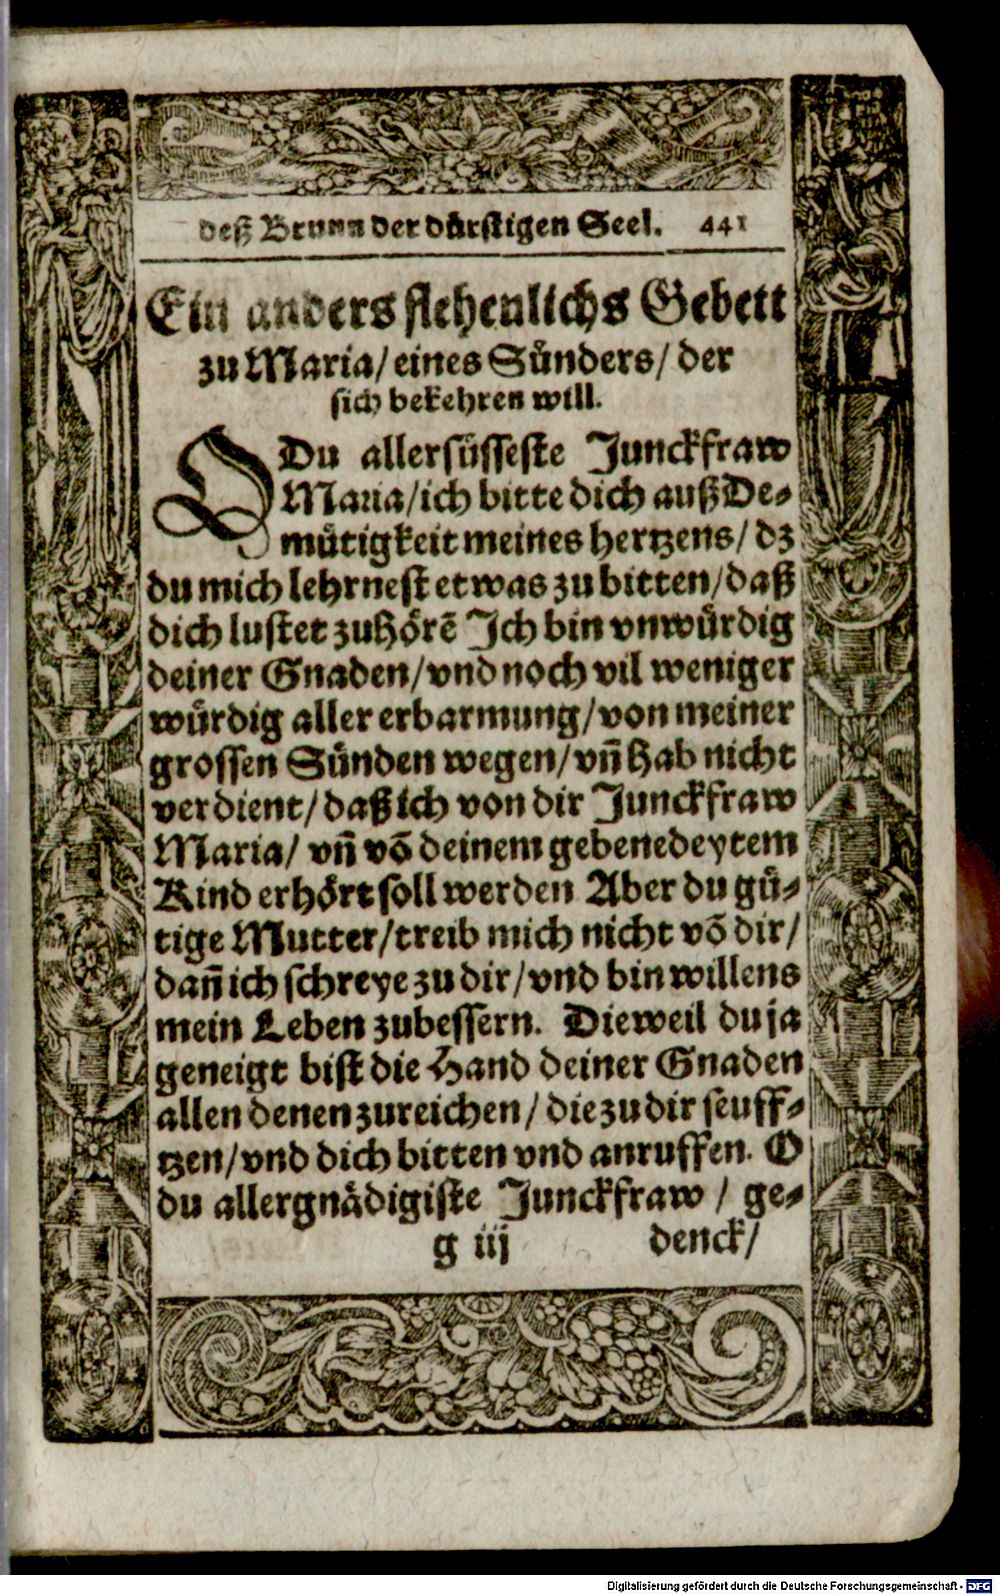 deß Brunn der dürstigen Seel. 441
Ein anders flehenlichs Gebett
zu Maria/ eines Sünders/ der
sich bekehren will.
O Du allersüsseste Junckfraw
Maria/ ich bitte dich auß De-
mütigkeit meines hertzens/ dz
du mich lehrnest etwas zu bitten/ daß
dich lustet zuhörẽ Ich bin vnwürdig
deiner Gnaden/ vnd noch vil weniger
würdig aller erbarmung/ von meiner
grossen Sünden wegen/ vñ hab nicht
verdient/ daß ich von dir Junckfraw
Maria/ vñ võ deinem gebenedeytem
Kind erhört soll werden Aber du gü-
tige Mutter/ treib mich nicht võ dir/
dañ ich schreye zu dir/ vnd bin willens
mein Leben zubessern. Dieweil du ja
geneigt bist die Hand deiner Gnaden
allen denen zureichen/ die zu dir seuff-
tzen/ vnd dich bitten vnd anruffen. O
du allergnädigiste Junckfraw/ ge-
g iij denck/
Digitalisierung gefördert durch die Deutsche Forschungsgemeinschaft - DFG